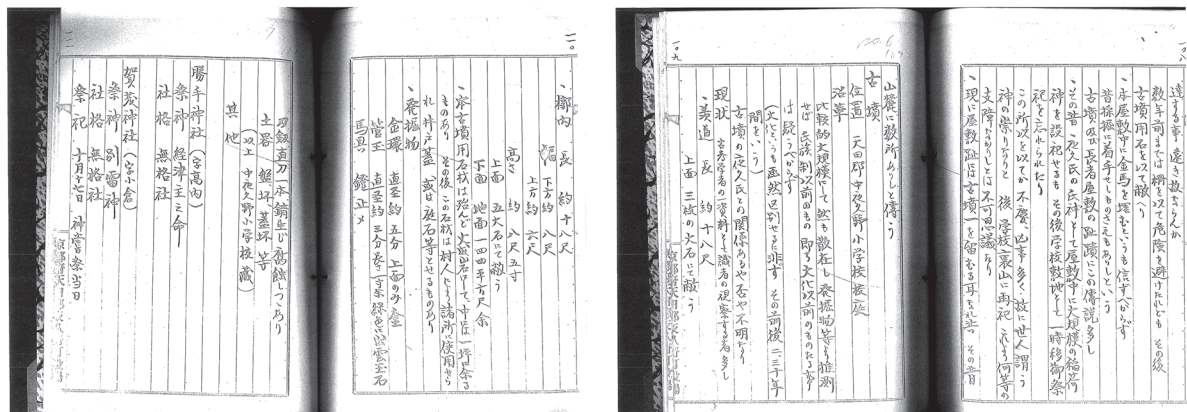 一〇八
達する事遠き故ならんか
数年前までは柵を以て危険を避けたれども その後
古墳用石を以て敝へり
・本屋敷中に金馬を埋むといふも信ずべからず
昔採掘に着手せしものさえもありしといふ
古墳及び長者屋敷の趾蹟にこの傳説多し
・その昔 夜久氏の氏神として屋敷中に大規模の稲荷
神を設祀せるも その後学校敷地として 一時移御祭
祀を忘れられたり
この所以を以てか不慶、凶事多く 故に世人謂う
神の祟りなりと 後 学校裏山に再祀
支障なかりしとは不可思議なり
・現に屋敷趾には古墳一を留むる耳なれ共 その昔
一〇九
山麓に数所ありしと傳う
古墳
位置 天田郡中夜久野小学校々庭
沿革
比較的大規模にして 然も散在し 発掘物等より推測
せば 兵法制以前のもの 即ち文化以前のものたる事
は疑うべからず
(文化というも画然区別せるに非ず その前後二、三千年
間をいう)
古墳の夜久氏との関係ありや否や不明なり
現状 古考学者の一資料として識者の視察する者多し
・羨道 長 約十八尺
上面 三枚の大石にて敝う
一一〇
・槨内 長 約十八尺
幅 下方 約八尺
上方 約六尺
高さ 約八尺五寸
上面 五大石にて敝う
下面 地面 一四四平方尺余
・本古墳用石材は殆んど火山岩にして、中には一坪に余る
ものあり その後この石材は村人により諸所に使用せら
れ 井戸蓋 或は庭石等とせるものあり
・発掘物
金環 直径約五分 上面のみ金
管玉 直径約三分 長さ一寸 深緑色に富む雲玉石
馬具の鐙止メ
一一一
刀劔 直刀一本 錆生じ腐蝕しつつあり
土器 盌坏、蓋坏、等
(以上 中夜久野小学校蔵)
其他
勝手神社 (字高内)
祭神 経津主之命
社格 無格社
賀茂神社 (字小倉)
祭神 別雷神
社格 無格社
祭祀 十月十七日 神嘗祭当日